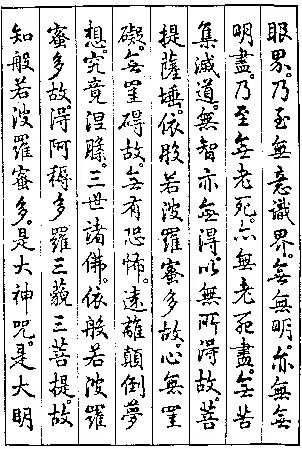 眼界。乃至無意識界。無無明亦無無
明盡。乃至無老死。亦無老死盡。無苦
集滅道。無智亦無得。以無所得故。菩
提薩埵。依般若波羅蜜多故。心無罣
礙。無罣碍故。無有恐怖。遠離顛倒夢
想。究竟涅槃。三世諸佛。依般若波羅
蜜多故。得阿耨多羅三藐三菩提。故
知般若波羅蜜多。是大神咒。是大明